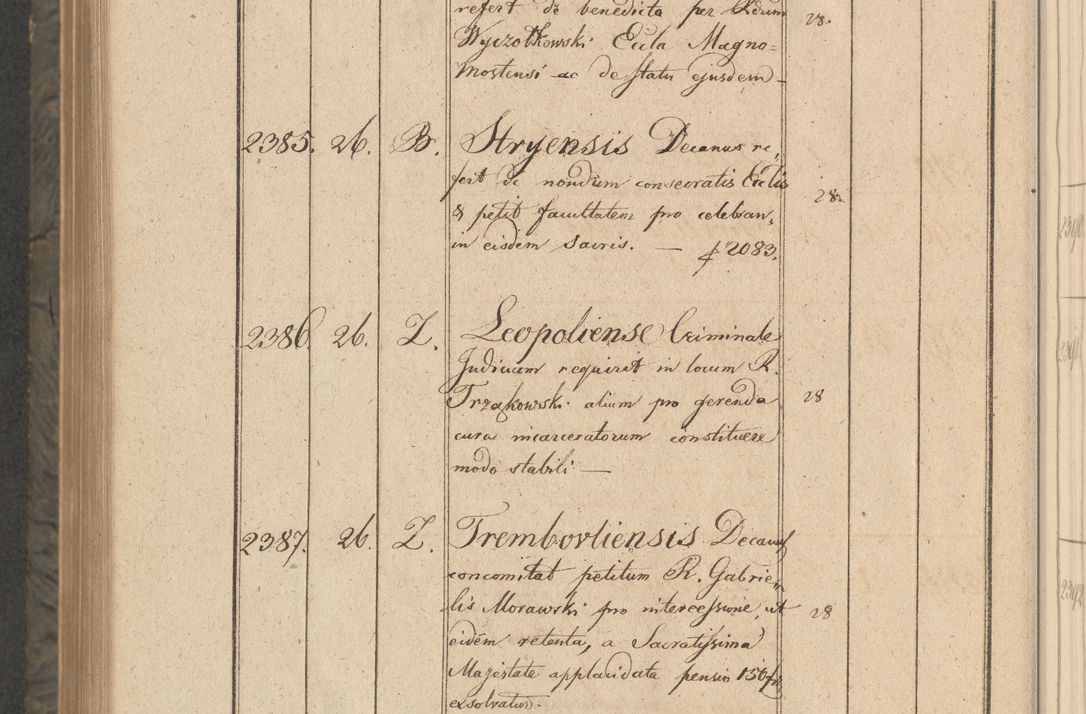 refert de benedicta per Rdum 28.
Wyczołkowski Eccla Magno=
Mostensi ac de statu ejusdem -
2385. 26. B. Stryensis Decanus re,
fert de nondum consecratis Ecclis 28.
& petit facultatem pro celebran,
in eisdem sacris. — f 2083.
2386. 26. L. Leopoliense Criminale
Judicium requirit in locum R.
Trząkowski alium pro gerenda 28
cura incarceratorum constituere
modo stabili —
2387. 26. L. Trembovliensis Decanus
concomitat petitum R. Gabrie,
lis Morawski pro intercessione, ut 28
eidem retenta, a Sacratissima
Majestate applacidata pensio 150 fr
exsolvatur.
2390
2391
2392